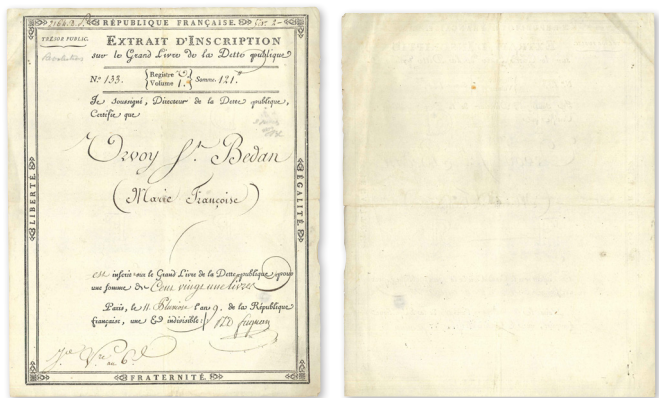 RÉPUBLIQUE FRANÇAISE.
TRÉSOR PUBLIC.
EXTRAIT D'INSCRIPTION
sur le Grand Livre de la Dette publique
N.º 133. Registre Volume 1. Somme. 121.
Je soussigné, Directeur de la Dette publique,
Certifie que
Orvoy St. Bedan
(Marie Françoise)
est inscrit sur le Grand Livre de la Dette publique pour
une somme de Cent vingt une livres
Paris, le 11 l'an 9. de la République
française, une & indivisible.
LIBERTÉ.
ÉGALITÉ.
FRATERNITÉ.